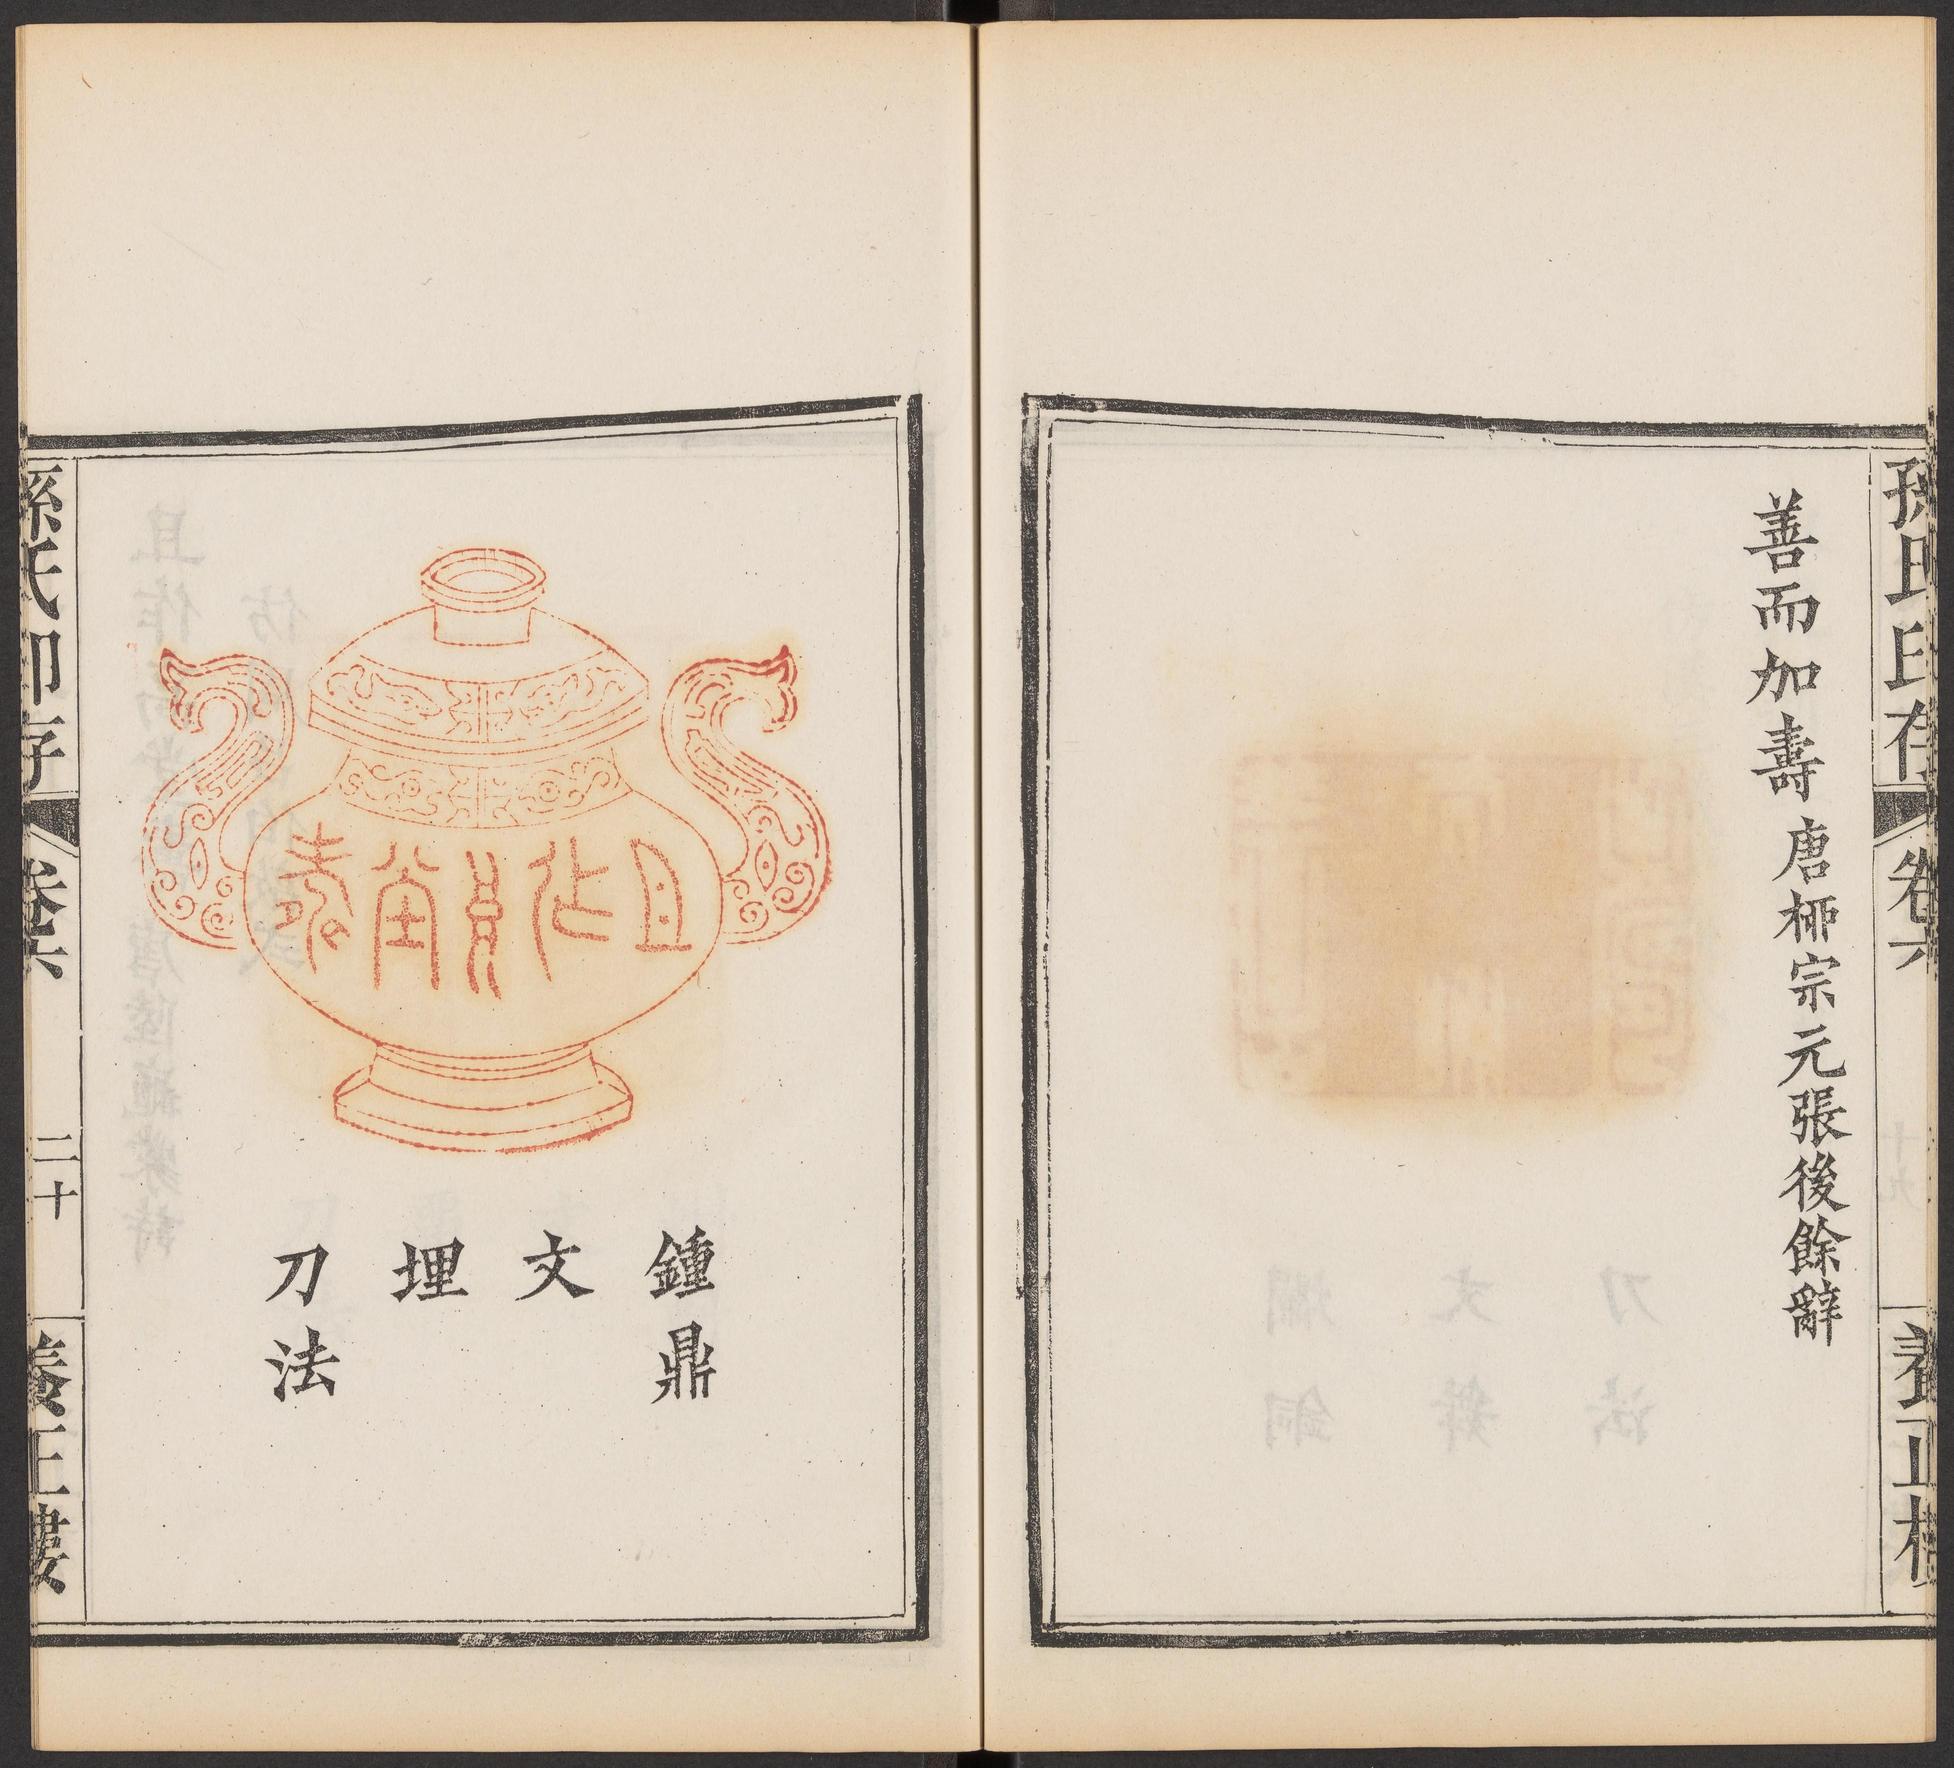 孫氏印存
卷六
養正樓
善而加壽 唐柳宗元張後餘辭
且作
鍾鼎
文
埋
刀法
孫氏印存
卷六
二十
養正樓